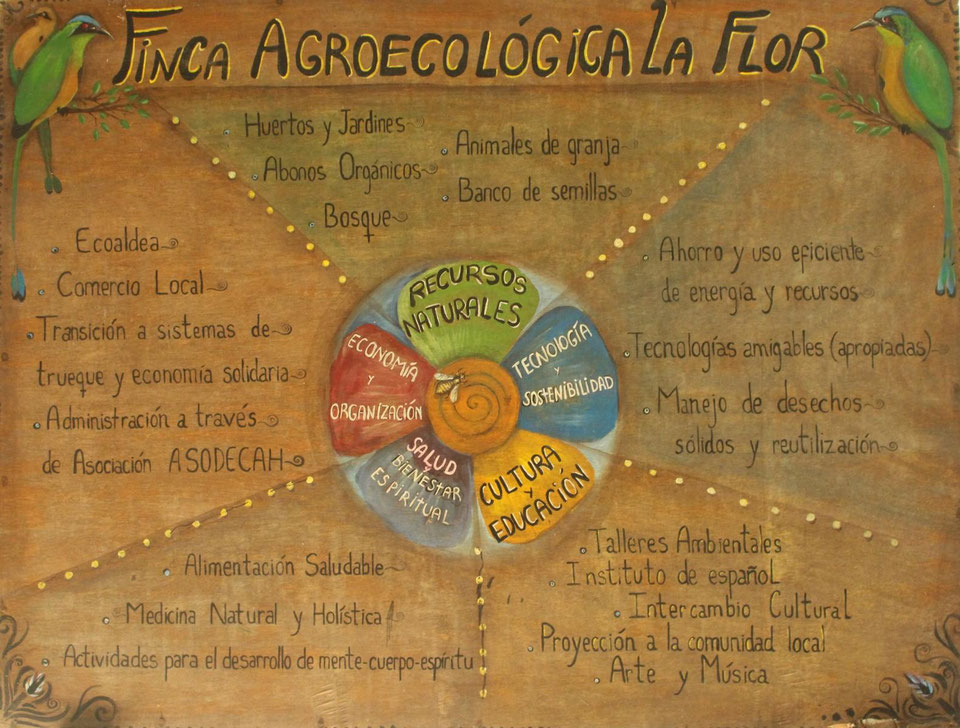 FINCA AGROECOLÓGICA LA FLOR
Huertos y Jardines
Abonos Orgánicos
Bosque
Animales de granja
Banco de semillas
Ecoaldea
Comercio Local
Transición a sistemas de
trueque y economía solidaria
Administración a través
de Asociación ASODECAH
Ahorro y uso eficiente
de energía y recursos
Tecnologías amigables (apropiadas)
Manejo de desechos
sólidos y reutilización
RECURSOS
NATURALES
ECONOMÍA
Y
ORGANIZACIÓN
TECNOLOGÍA
Y
SOSTENIBILIDAD
SALUD
BIENESTAR
ESPIRITUAL
CULTURA
Y
EDUCACIÓN
Alimentación Saludable
Medicina Natural y Holística
Actividades para el desarrollo de mente-cuerpo-espíritu
Talleres Ambientales
Instituto de español
Intercambio Cultural
Proyección a la comunidad local
Arte y Música